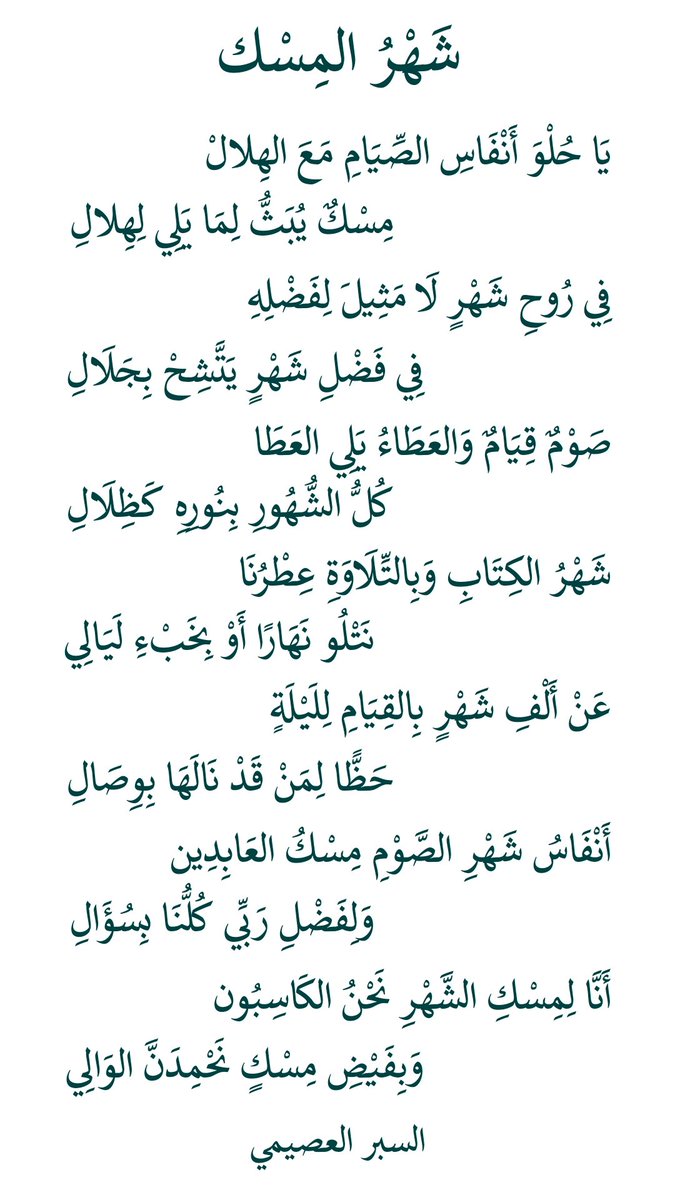 شَهْرُ المِسْك
يَا حُلْوَ أَنْفَاسِ الصِّيَامِ مَعَ الهِلالْ
مِسْكٌ يُبَثُّ لِمَا يَلِي لِهِلالِ
فِي رُوحِ شَهْرٍ لَا مَثِيلَ لِفَضْلِهِ
فِي فَضْلِ شَهْرٍ يَتَّشِحْ بِجَلَالِ
صَوْمٌ قِيَامٌ وَالعَطَاءُ يَلِي العَطَا
كُلُّ الشُّهُورِ بِنُورِهِ كَظِلَالِ
شَهْرُ الكِتَابِ وَبِالتِّلَاوَةِ عِطْرُنَا
نَتْلُو نَهَارًا أَوْ بِخَبْءِ لَيَالِي
عَنْ أَلْفِ شَهْرٍ بِالقِيَامِ لِلَيْلَةٍ
حَظًّا لِمَنْ قَدْ نَالَهَا بِوِصَالِ
أَنْفَاسُ شَهْرِ الصَّوْمِ مِسْكُ العَابِدِين
وَلِفَضْلِ رَبِّي كُلُّنَا بِسُؤَالِ
أَنَّا لِمِسْكِ الشَّهْرِ نَحْنُ الكَاسِبُون
وَبِفَيْضِ مِسْكٍ نَحْمِدَنَّ الوَالِي
السبر العصيمي